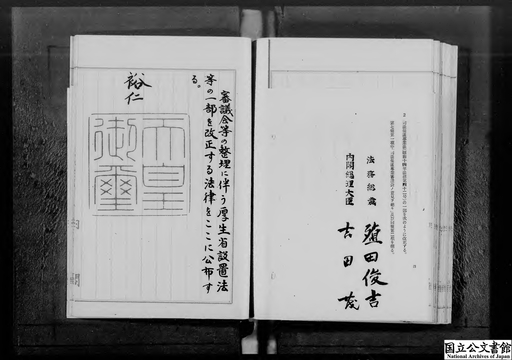 法務総裁 殖田俊吉
内閣総理大臣 吉田茂
審議会等の整理に伴う厚生省設置法
等の一部を改正する法律をここに公布す
る。
裕仁
天皇
御璽
国立公文書館
National Archives of Japan